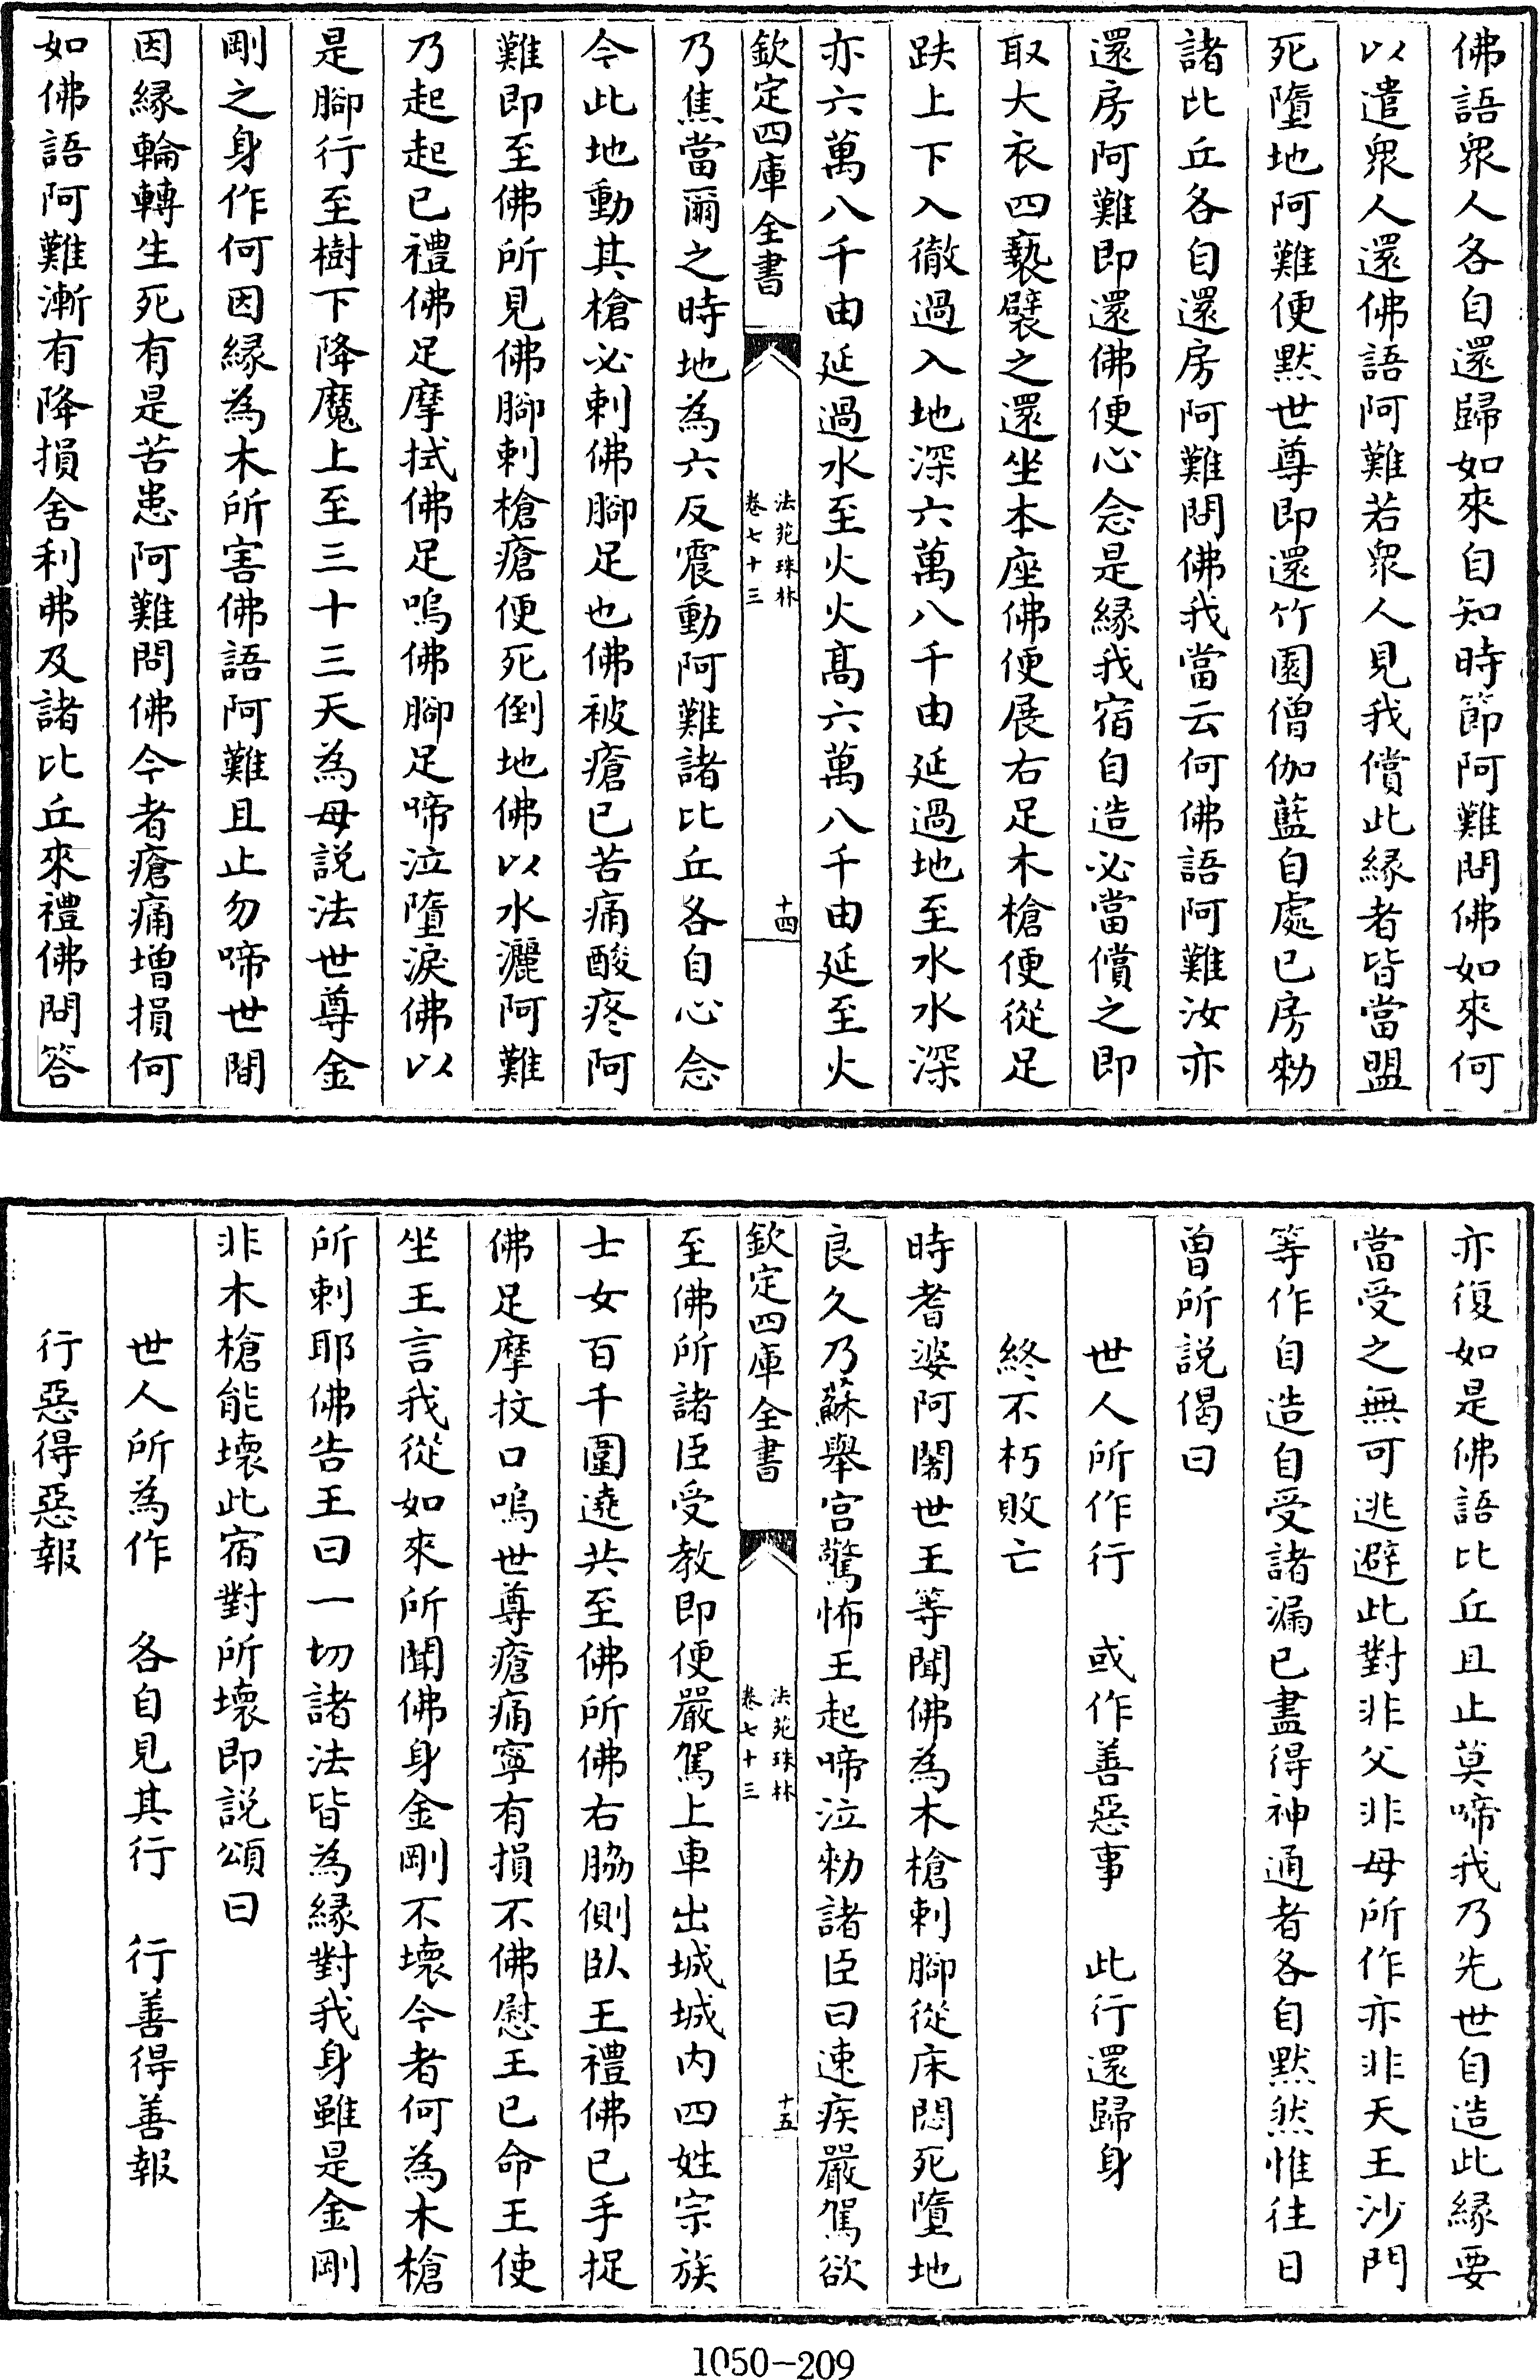 佛語衆人各自還歸如來自知時節阿難問佛如來何
以遣衆人還佛語阿難若衆人見我償此縁者皆當盟
死墮地阿難便黙世尊即還竹園僧伽藍自處已房勑
諸比丘各自還房阿難問佛我當云何佛語阿難汝亦
還房阿難即還佛便心念是縁我宿自造必當償之即
取大衣四褺襞之還坐本座佛便展右足木槍便從足
趺上下入徹過入地深六萬八千由延過地至水水深
亦六萬八千由延過水至火火髙六萬八千由延至火
欽定四庫全書
法苑珠林
卷七十三
十四
乃焦當爾之時地為六反震動阿難諸比丘各自心念
今此地動其槍必刺佛腳足也佛被瘡已苦痛酸疼阿
難即至佛所見佛腳刺槍瘡便死倒地佛以水灑阿難
乃起起已禮佛足摩拭佛足嗚佛腳足啼泣墮淚佛以
是腳行至樹下降魔上至三十三天為母説法世尊金
剛之身作何因縁為木所害佛語阿難且止勿啼世間
因縁輪轉生死有是苦患阿難問佛今者瘡痛增損何
如佛語阿難漸有降損舍利弗及諸比丘來禮佛問答
亦復如是佛語比丘且止莫啼我乃先世自造此縁要
當受之無可逃避此對非父非母所作亦非天王沙門
等作自造自受諸漏已盡得神通者各自黙然惟往日
曽所説偈曰
世人所作行　或作善惡事　此行還歸身
終不朽敗亡
時耆婆阿闍世王等聞佛為木槍刺腳從床悶死墮地
良久乃蘇舉宫驚怖王起啼泣勑諸臣曰速疾嚴駕欲
欽定四庫全書
法苑珠林
卷七十三
十五
至佛所諸臣受教即便嚴駕上車出城城内四姓宗族
士女百千圍遶共至佛所佛右脇側臥王禮佛已手捉
佛足摩抆口嗚世尊瘡痛寧有損不佛慰王已命王使
坐王言我從如來所聞佛身金剛不壞今者何為木槍
所刺耶佛告王曰一切諸法皆為縁對我身雖是金剛
非木槍能壞此宿對所壞即説頌曰
世人所為作　各自見其行　行善得善報
行惡得惡報
1050-209